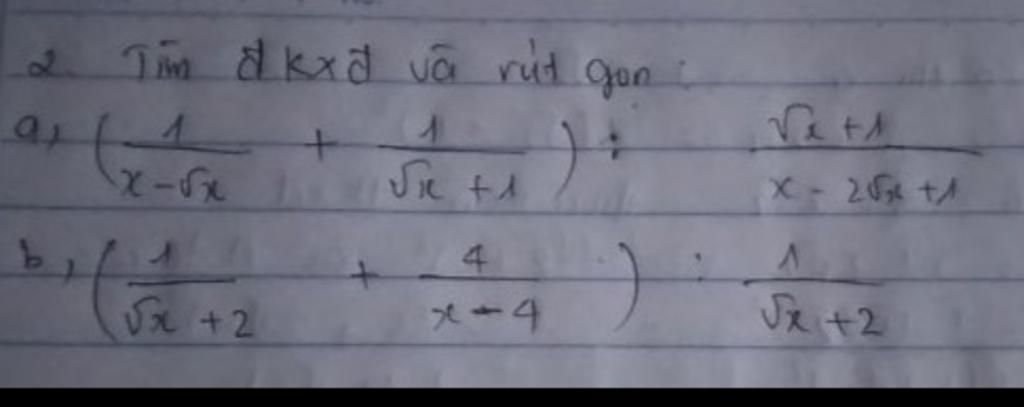 2. Tìm đkxđ và rút gọn :
a, ( 1/(x-√x) + 1/(√x +1) ) : (√x +1)/(x - 2√x +1)
b, ( 1/(√x +2) + 4/(x-4) ) : 1/(√x +2)